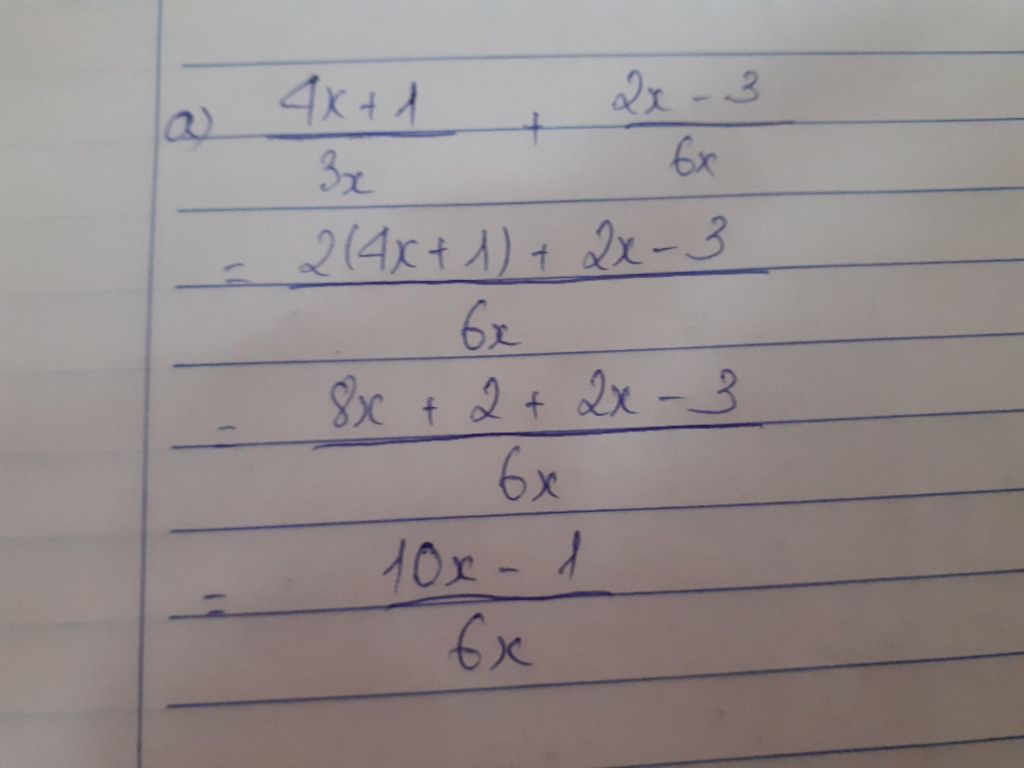 a) (4x + 1)/(3x) + (2x - 3)/(6x)
= (2(4x + 1) + 2x - 3)/(6x)
= (8x + 2 + 2x - 3)/(6x)
= (10x - 1)/(6x)